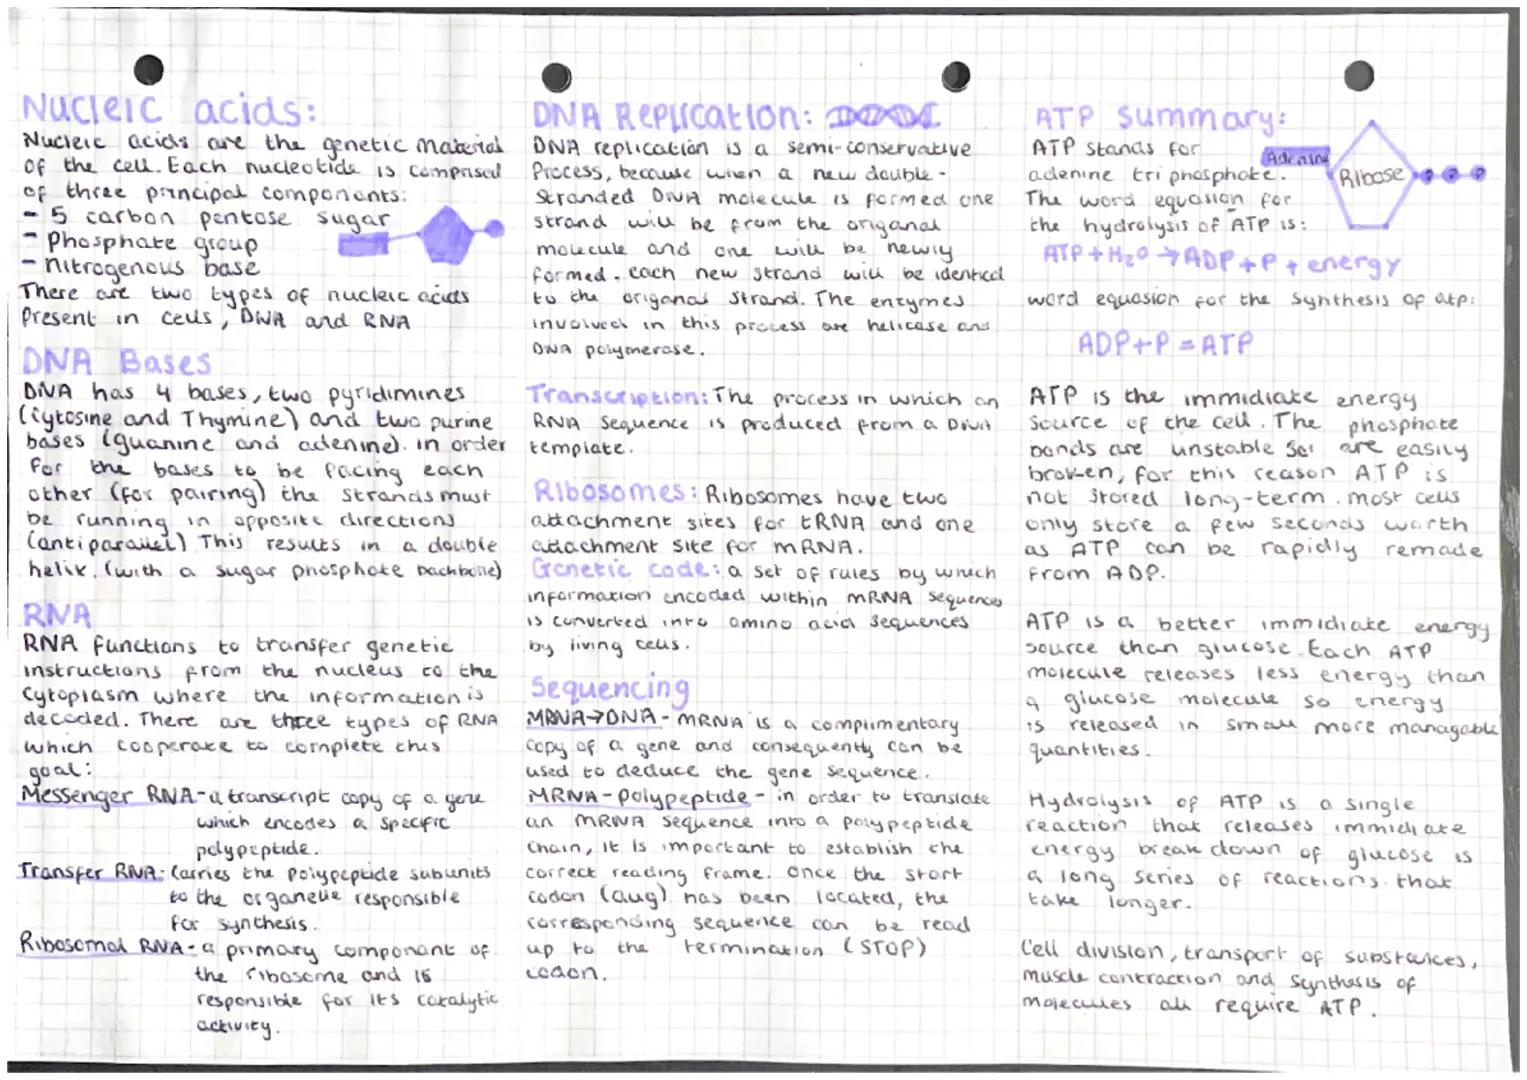 Nucleic acids:
Nucleic acids are the genetic material
of the cell. Each nucleotide is comprised
of three principal components:
- 5 carbon pentose sugar
- Phosphate group
- nitrogenous base
There are two types of nucleic acids
Present in cells, DNA and RNA
DNA Bases
DNA has 4 bases, two pyridimines
(Cytosine and Thymine) and two purine
bases (guanine and adenine). in order
for the bases to be facing each
other (for pairing) the strands must
be running in opposite directions
(antiparallel) This results in a double
helix. (with a sugar phosphate backbone)
RNA
RNA functions to transfer genetic
instructions from the nucleus to the
Cytoplasm where the information is
decoded. There are three types of RNA
which cooperate to complete this
goal:
Messenger RNA - a transcript copy of a gene
which encodes a specific
polypeptide.
Transfer RNA: Carries the polypeptide subunits
to the organelle responsible
for synthesis.
Ribosomal RNA - a primary component of
the ribosome and is
responsible for its catalytic
activity.
DNA Replication:
DNA replication is a semi-conservative
Process, because when a new double-
Stranded DNA molecule is formed one
strand will be from the origanal
molecule and one will be newly
formed. Each new strand will be identical
to the origanal strand. The enzymes
involved in this process are helicase and
DNA polymerase.
Transcription: The process in which an
RNA Sequence is produced from a DNA
template.
Ribosomes: Ribosomes have two
attachment sites for tRNA and one
attachment site for mRNA.
Genetic code: a set of rules by which
information encoded within mRNA sequences
is converted into amino acid sequences
by living cells.
Sequencing
MRNA→DNA - mRNA is a complimentary
copy of a gene and consequently can be
used to deduce the gene sequence.
MRNA - Polypeptide - in order to translate
an mRNA sequence into a polypeptide
Chain, it is important to establish the
correct reading frame. Once the start
codon (aug) has been located, the
corresponding sequence can be read
up to the termination (STOP)
codon.
ATP Summary:
ATP stands for
adenine tri phosphate.
Adenine
Ribose
P P P
The word equasion for
the hydrolysis of ATP is:
ATP + H₂O → ADP + P + energy
word equasion for the synthesis of atp:
ADP + P = ATP
ATP is the immidiate energy
Source of the cell. The phosphate
bonds are unstable so are easily
broken, for this reason ATP is
not stored long-term. most cells
only store a few seconds worth
as ATP can be rapidly remade
from ADP.
ATP is a better immidiate energy
source than glucose. Each ATP
molecule releases less energy than
a glucose molecule so energy
is released in small more managable
quantities.
Hydrolysis of ATP is a single
reaction that releases immidiate
energy break down of glucose is
a long series of reactions. that
take longer.
Cell division, transport of substances,
muscle contraction and synthesis of
molecules all require ATP.